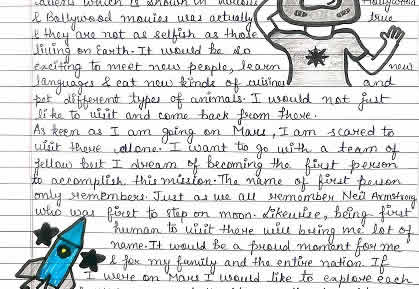 aliens which is shown in various Hollywood
& Bollywood movies was actually true
& they are not as selfish as those
living on Earth. It would be so
exciting to meet new people, learn new
languages & eat new kinds of cuisine and
pet different types of animals. I would not just
like to visit and come back from there.
As keen as I am going on Mars, I am scared to
visit there alone. I want to go with a team of
fellow but I dream of becoming the first person
to accomplish this mission. The name of first person
only remembers. Just as we all remember Neil Armstrong
who was first to step on moon. Likewise, being first
human to visit there will bring me lot of
name. It would be a proud moment for me
& for my family and the entire nation. If
I were on Mars I would like to explore each